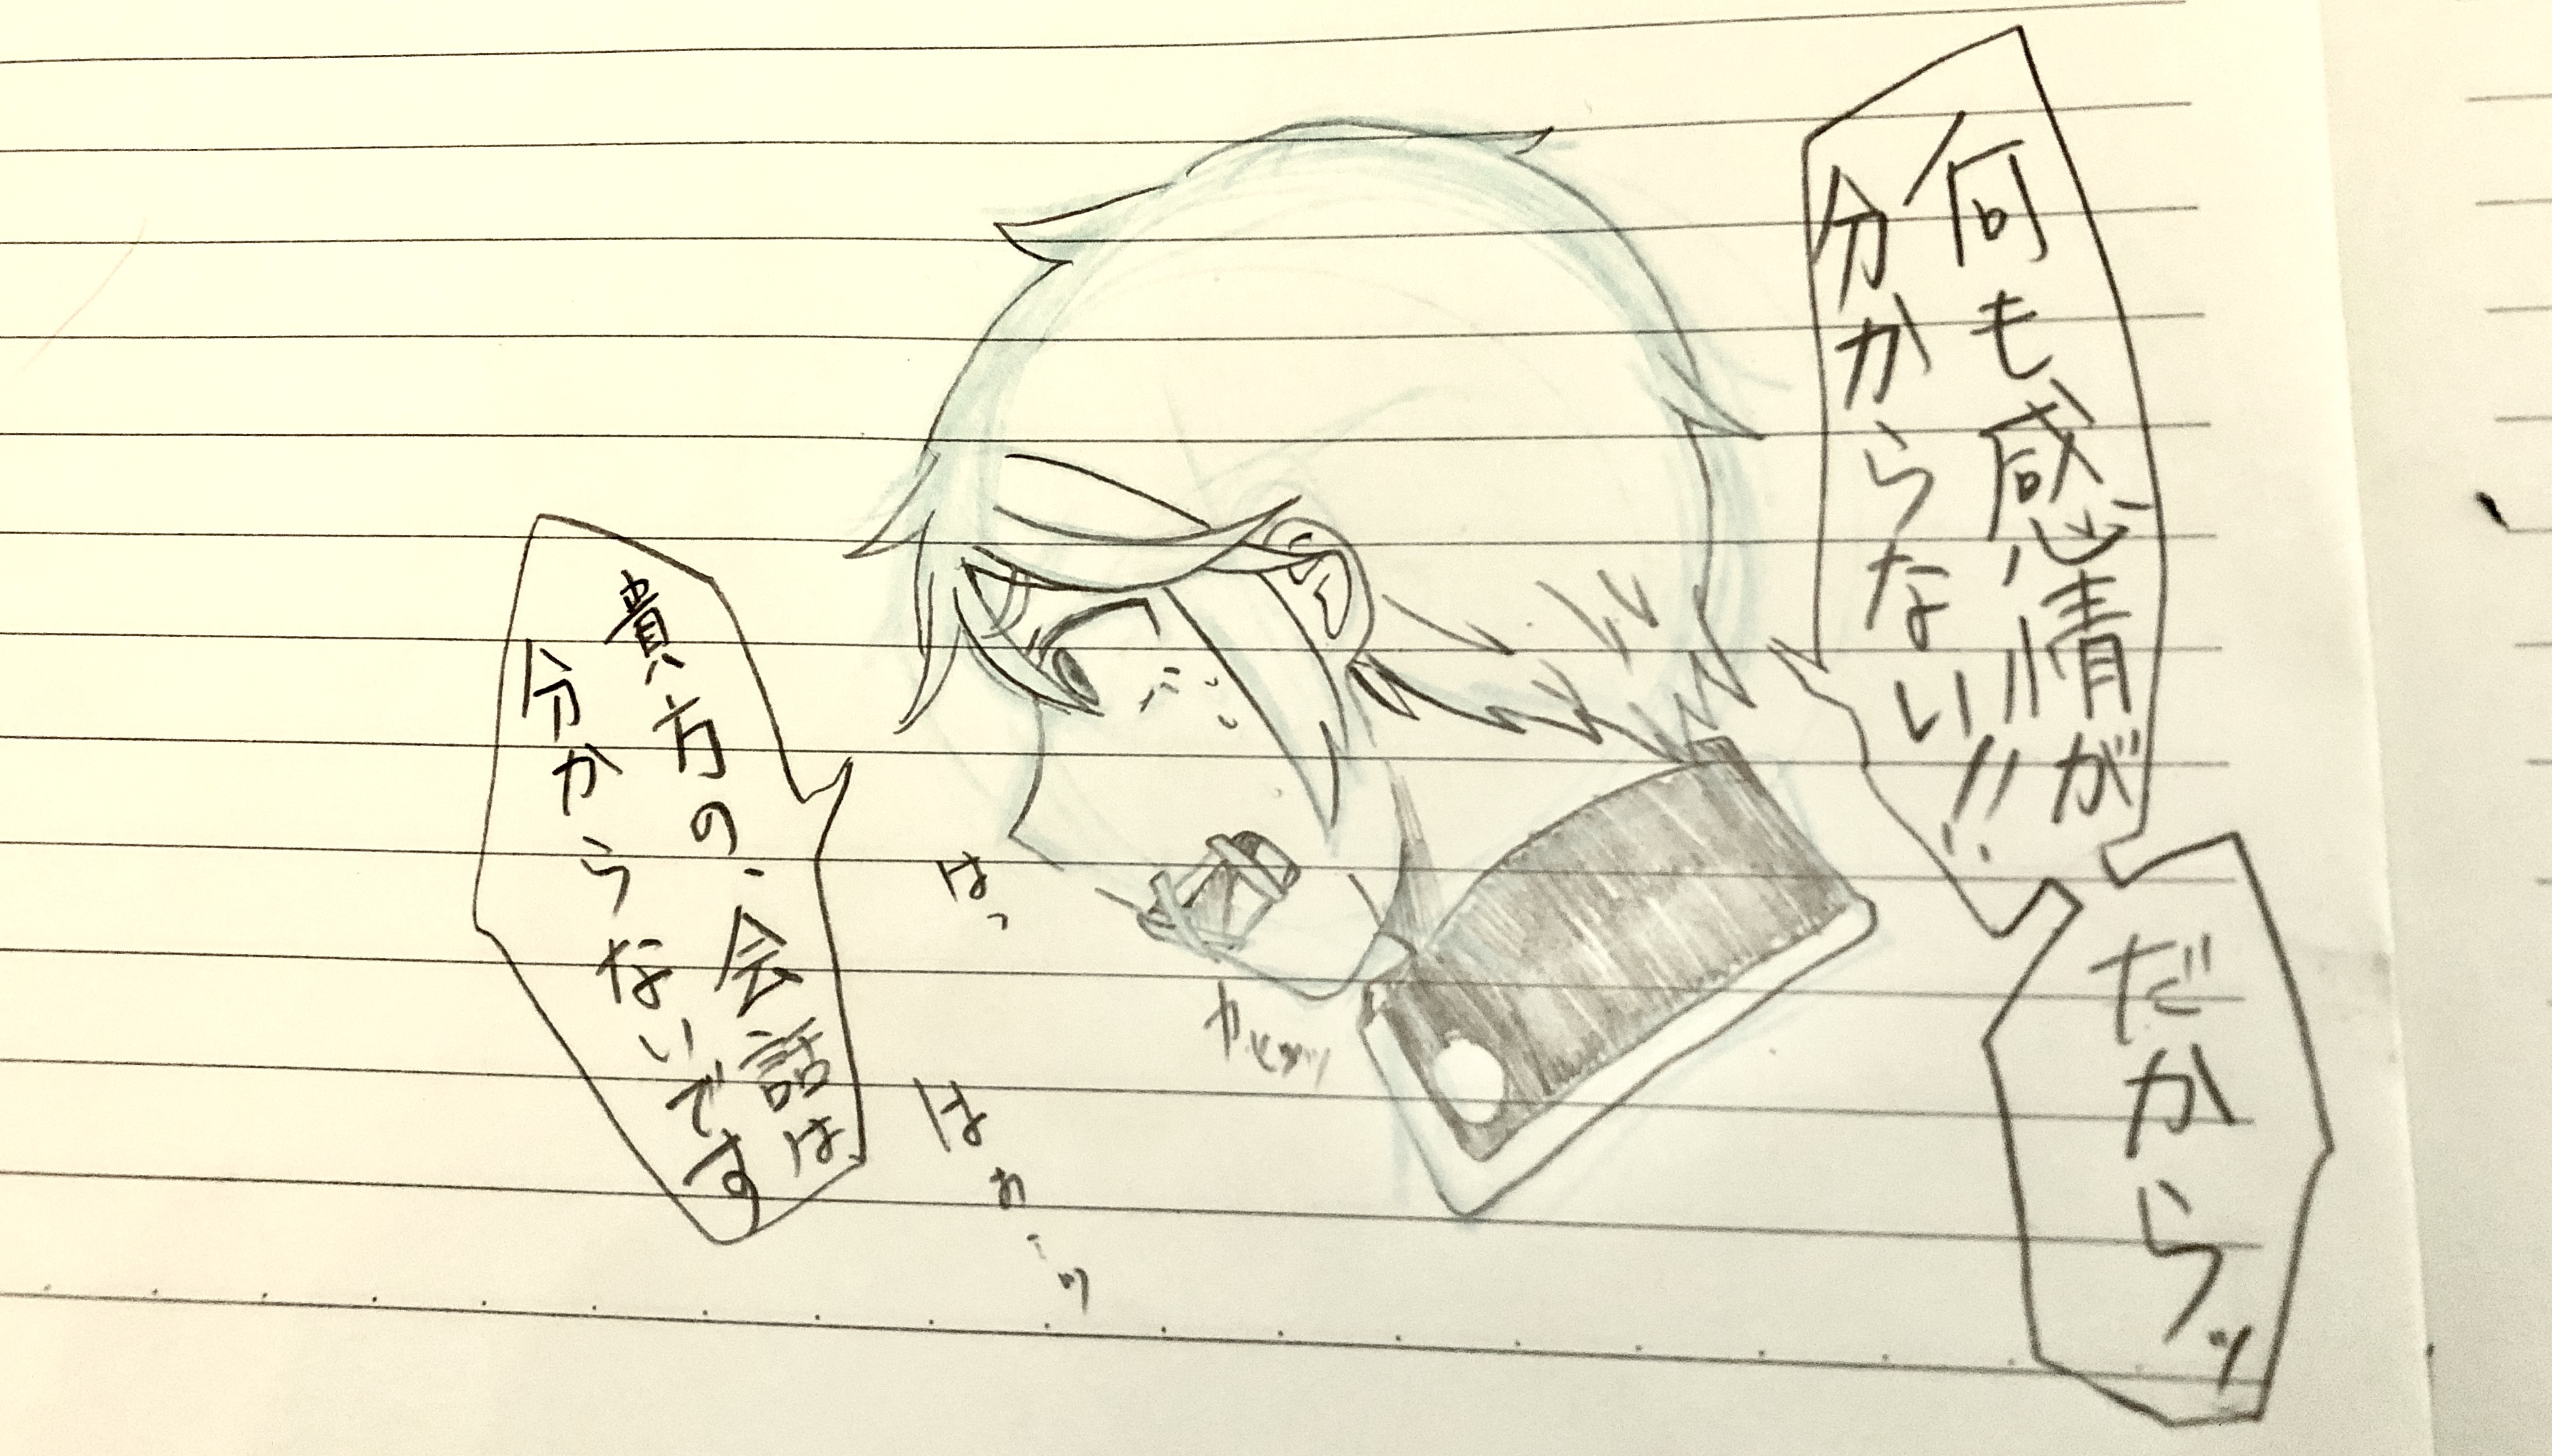 何も感情が
分からない!!
だからッ
はっ
はぁ…ッ
貴方の、会話は
分からないです